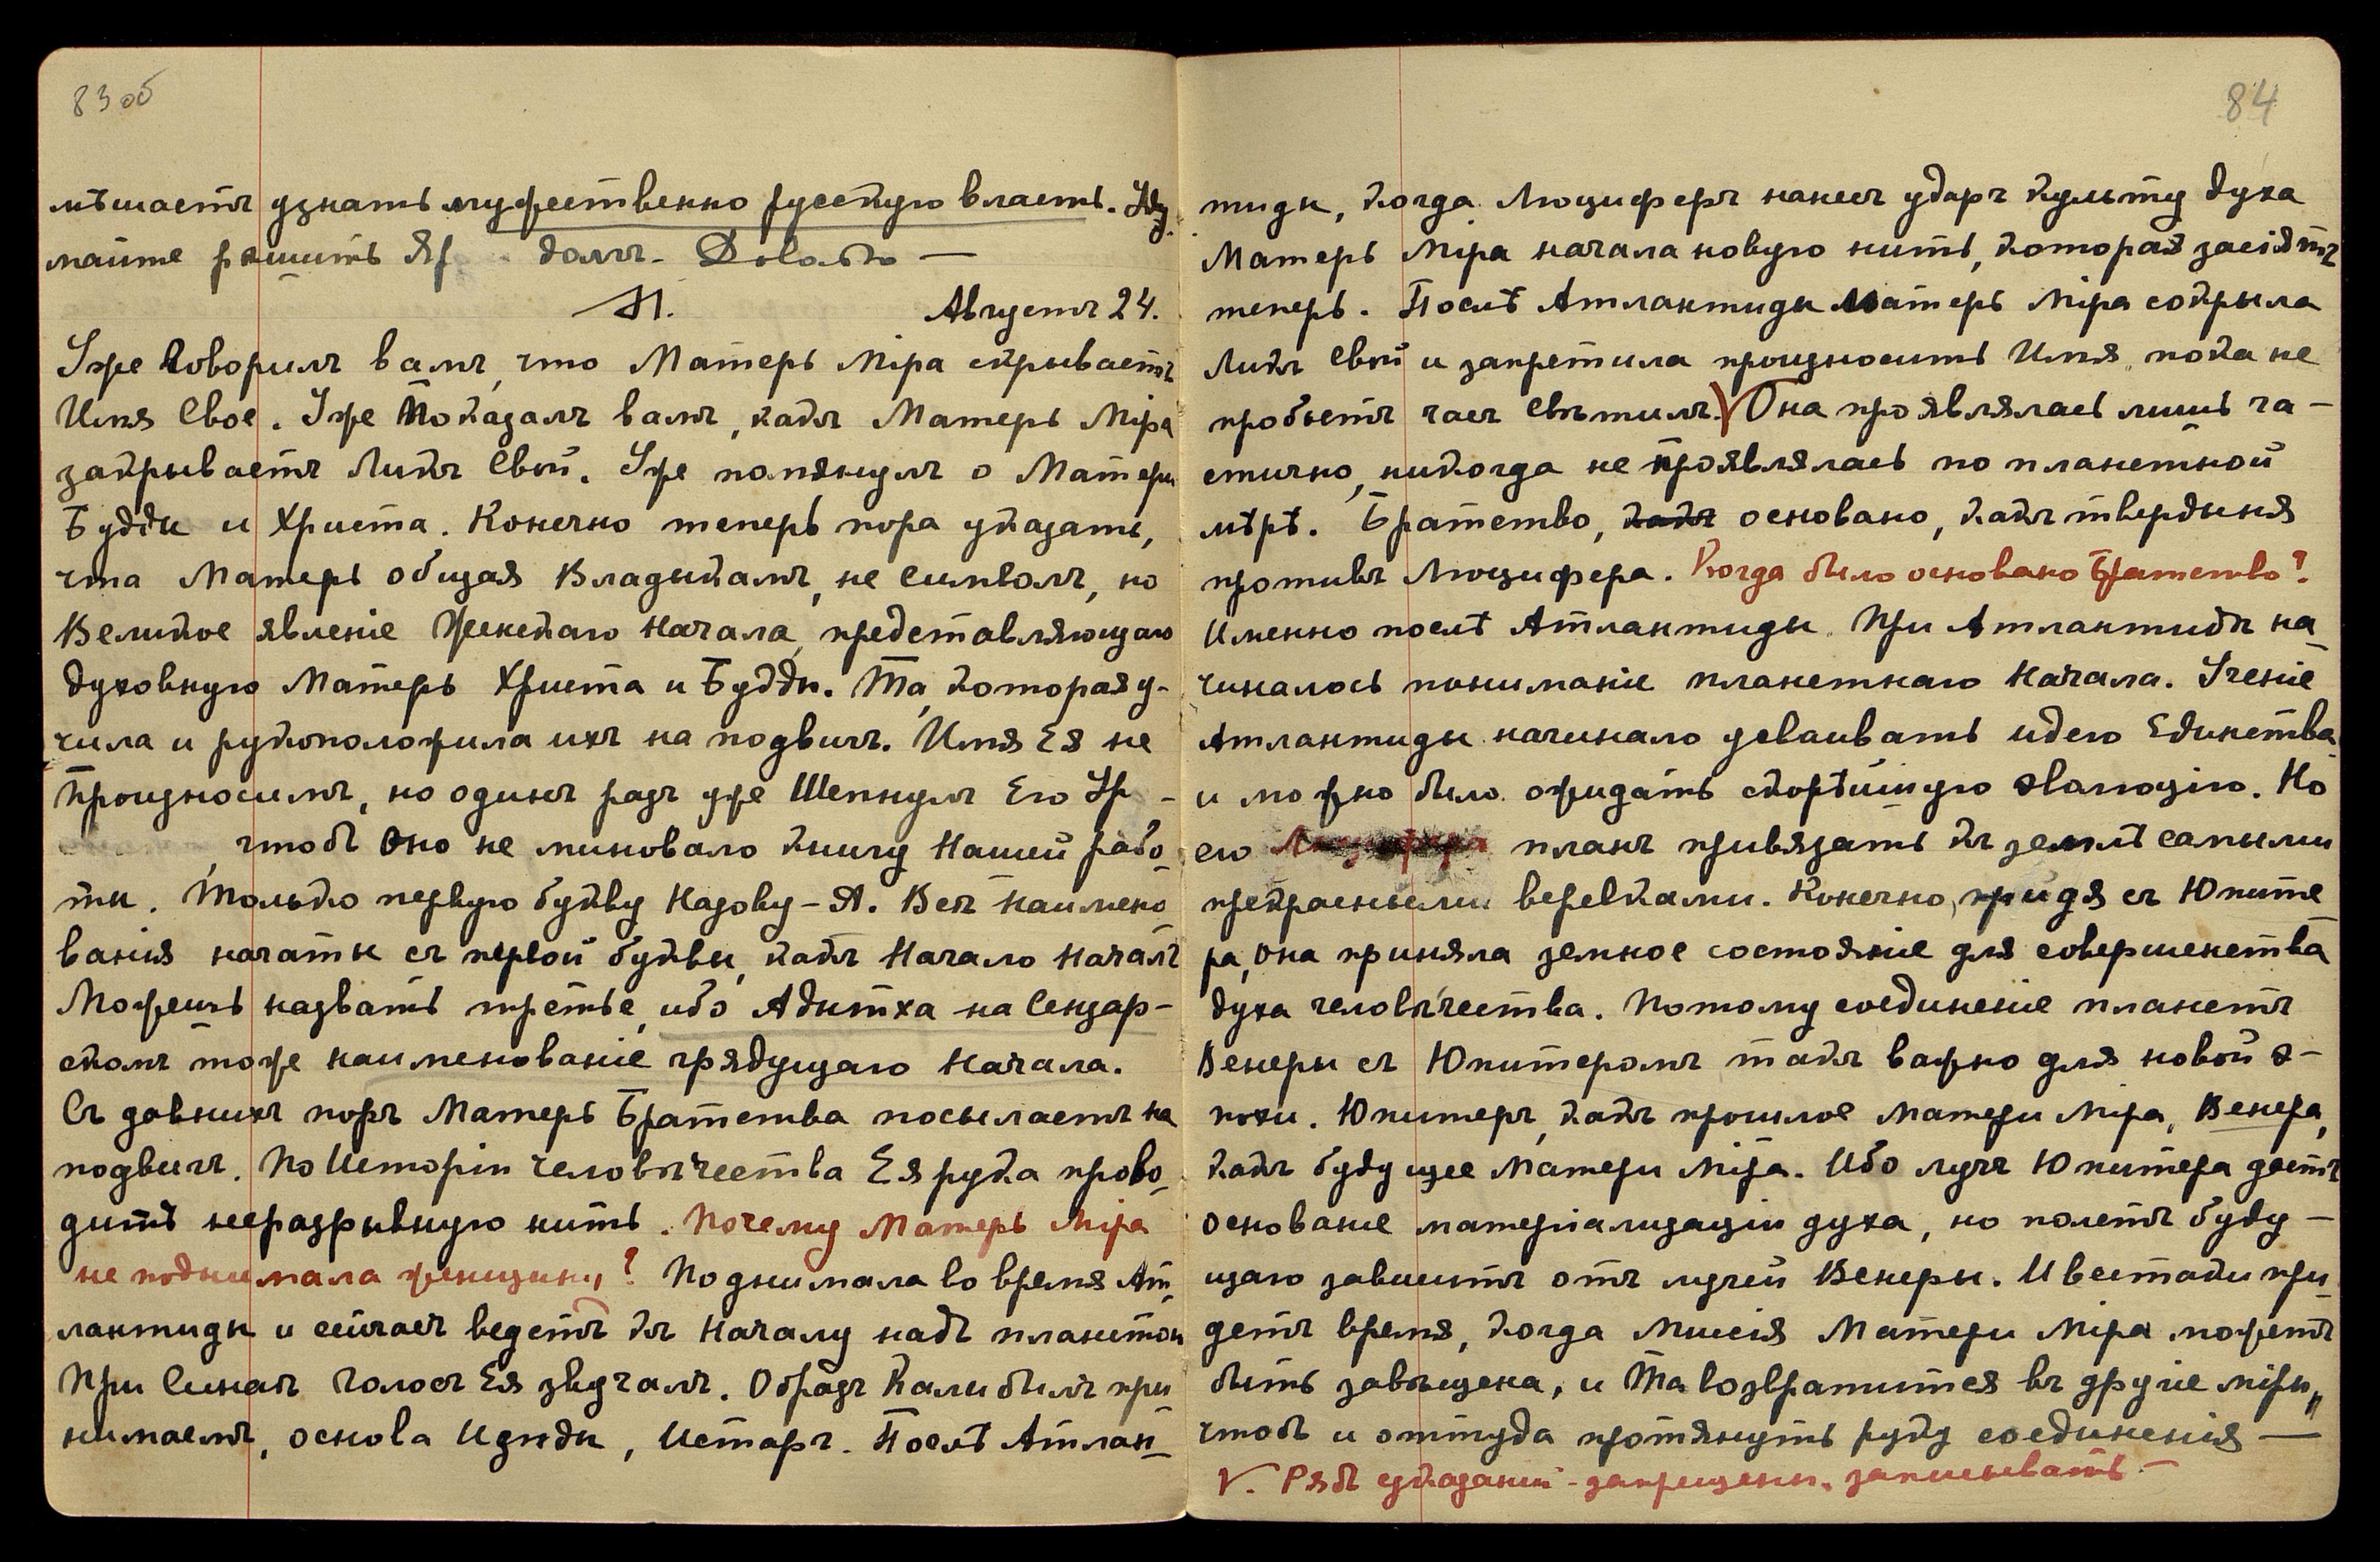 83об
мѣшаетъ узнать мужественно русскую власть. Ду
майте рѣшить Яр домъ. Довольно —
Н. Августъ 24.
Уже Говорилъ вамъ, что Матерь Міра скрываетъ
Имя Свое. Уже Показалъ вамъ, какъ Матерь Міра
закрываетъ Ликъ Свой. Уже помянулъ о Матери
Будды и Христа. Конечно теперь пора указать,
что Матерь общая Владыкамъ, не символъ, но
Великое явленіе Женскаго Начала, представляющаго
духовную Матерь Христа и Будды. Та, которая у-
чила и рукоположила ихъ на подвигъ. Имя Ея не
Произносимъ, но одинъ разъ уже Шепнулъ Его Ур -
, чтобъ Оно не миновало книгу Нашей рабо
ты. Только первую букву Назову - А. Всѣ наимено
ванія начаты съ первой буквы, какъ Начало Началъ
Можешь назвать третье, ибо Адитха на Сензар-
скомъ тоже наименованіе грядущаго Начала.
Съ давнихъ поръ Матерь Братства посылаетъ на
подвигъ. По Исторіи человѣчества Ея рука прово
дитъ неразрывную нить. Почему Матерь Міра
не поднимала женщины? Поднимала во время Ат
лантиды и сейчасъ ведетъ къ Началу надъ планетой
При Синаѣ голосъ Ея звучалъ. Образъ Кали былъ при
нимаемъ, основа Изиды, Истаръ. Послѣ Атлан
84
тиды, когда Люциферъ нанесъ ударъ культу духа
Матерь Міра начала новую нить, которая засіяетъ
теперь. Послѣ Атлантиды Матерь Міра сокрыла
Ликъ Свой и запретила произносить Имя, пока не
пробьетъ часъ свѣтилъ. V Она проявлялась лишь ча -
стично, никогда не проявлялась по планетной
мѣрѣ. Братство, какъ основано, какъ твердыня
противъ Люцифера. Когда было основано Братство?
Именно послѣ Атлантиды. При Атлантидѣ на
чиналось пониманіе планетнаго Начала. Ученіе
Атлантиды начинало усваивать идею Единства
и можно было ожидать скорѣйшую эволюцію. Но
его Люцифера планъ привязать къ землѣ самыми
прекрасными веревками. Конечно, придя съ Юпите
ра, Она приняла земное состояніе для совершенства
духа человѣчества. Потому соединеніе планетъ
Венеры съ Юпитеромъ такъ важно для новой э-
похи. Юпитеръ, какъ прошлое Матери Міра, Венера,
какъ будущее Матери Міра. Ибо лучъ Юпитера дастъ
основаніе матеріализаціи духа, но полетъ буду -
щаго зависитъ отъ лучей Венеры. И всетаки при
детъ время, когда Миссія Матери Міра можетъ
быть завѣщена, и Та возвратится въ другіе міры,
чтобъ и оттуда протянуть руку соединенія —
V. Рядъ указаній - запрещены. записывать. -